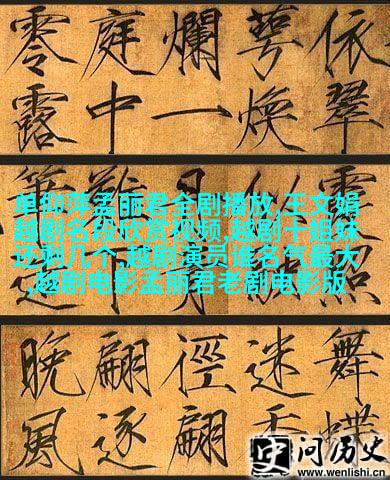 依翠
萼煥
爛一
庭中
零露
单仰萍孟丽君全剧播放,王文娟
越剧名段欣赏视频,越剧十姐妹
还剩几个,越剧演员谁名气最大
,越剧电影孟丽君老剧电影版
舞蝶
迷香
徑翩
翩逐
晚風
问历史
www.wenlishi.cn